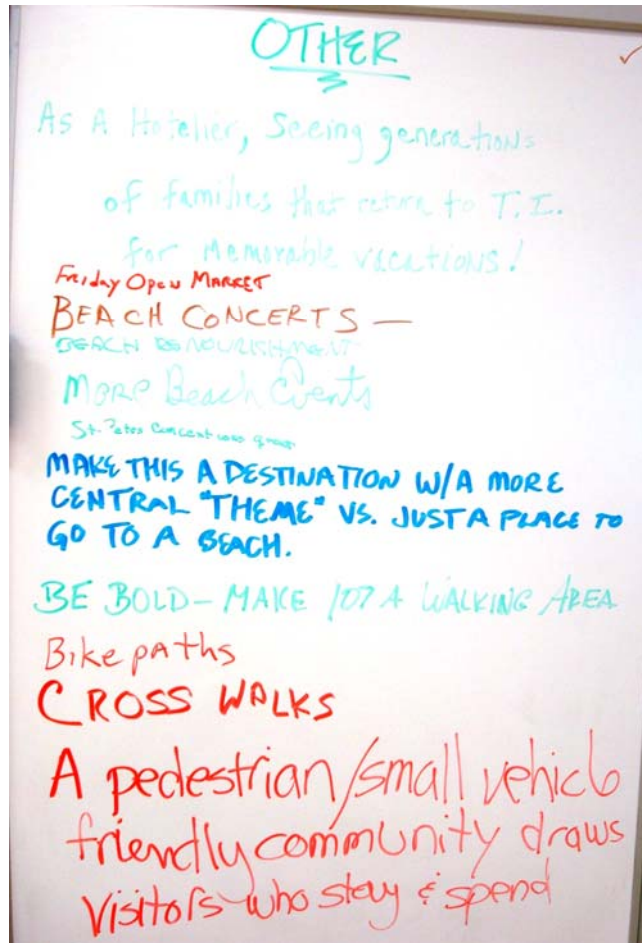 OTHER
As A Hotelier, Seeing generations
of families that return to T.I.
for Memorable vacations!
Friday Open MARKET
BEACH CONCERTS —
BEACH RENOURISHMENT
MORE Beach Events
St. Petes Concert was great
MAKE THIS A DESTINATION W/A MORE
CENTRAL "THEME" VS. JUST A PLACE TO
GO TO A BEACH.
BE BOLD - MAKE 107 A WALKING AREA
Bike paths
CROSS WALKS
A pedestrian/small vehicle
friendly community draws
Visitors who stay & spend